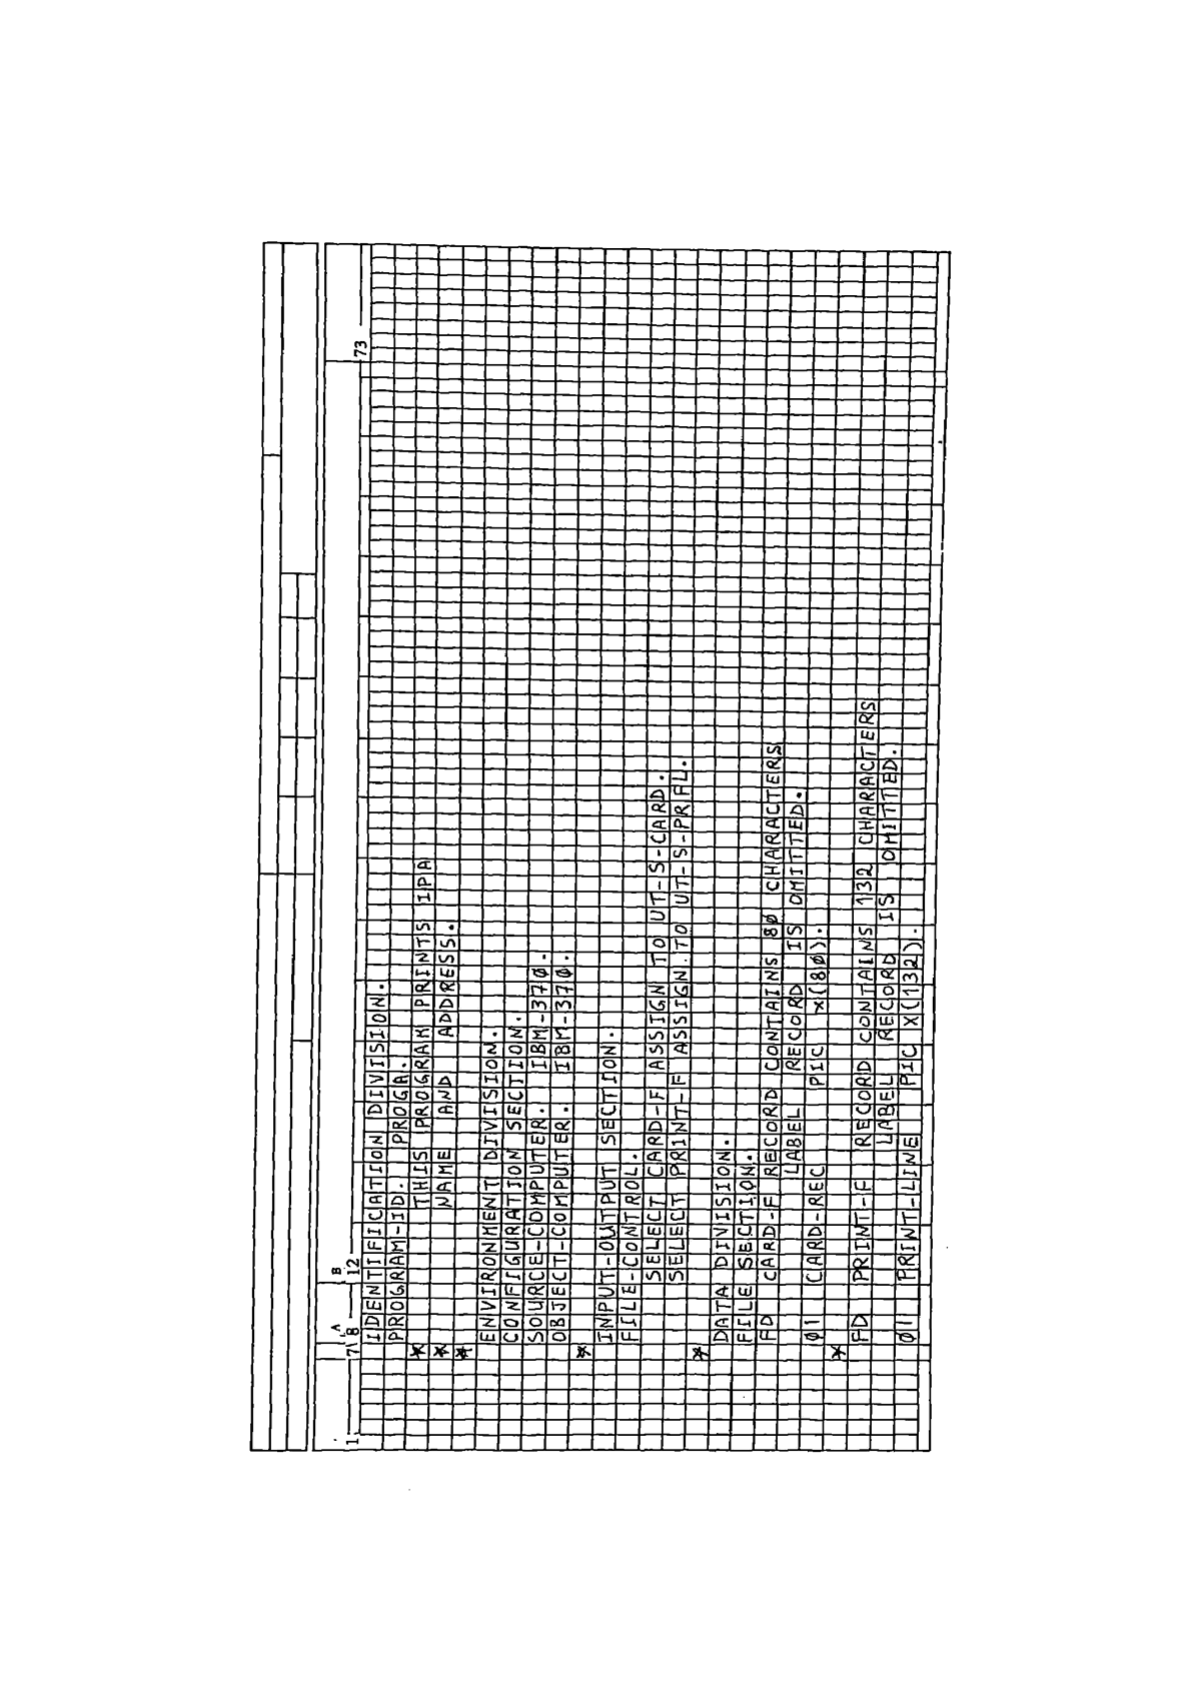 A B
1 7 8 12 73
IDENTIFICATION DIVISION.
PROGRAM-ID. PROGA.
* THIS PROGRAM PRINTS IPA
* NAME AND ADDRESS.
*
ENVIRONMENT DIVISION.
CONFIGURATION SECTION.
SOURCE-COMPUTER. IBM-370.
OBJECT-COMPUTER. IBM-370.
*
INPUT-OUTPUT SECTION.
FILE-CONTROL.
SELECT CARD-F ASSIGN TO UT-S-CARD.
SELECT PRINT-F ASSIGN TO UT-S-PRFL.
*
DATA DIVISION.
FILE SECTION.
FD CARD-F RECORD CONTAINS 80 CHARACTERS
LABEL RECORD IS OMITTED.
01 CARD-REC PIC X(80).
*
FD PRINT-F RECORD CONTAINS 132 CHARACTERS
LABEL RECORD IS OMITTED.
01 PRINT-LINE PIC X(132).